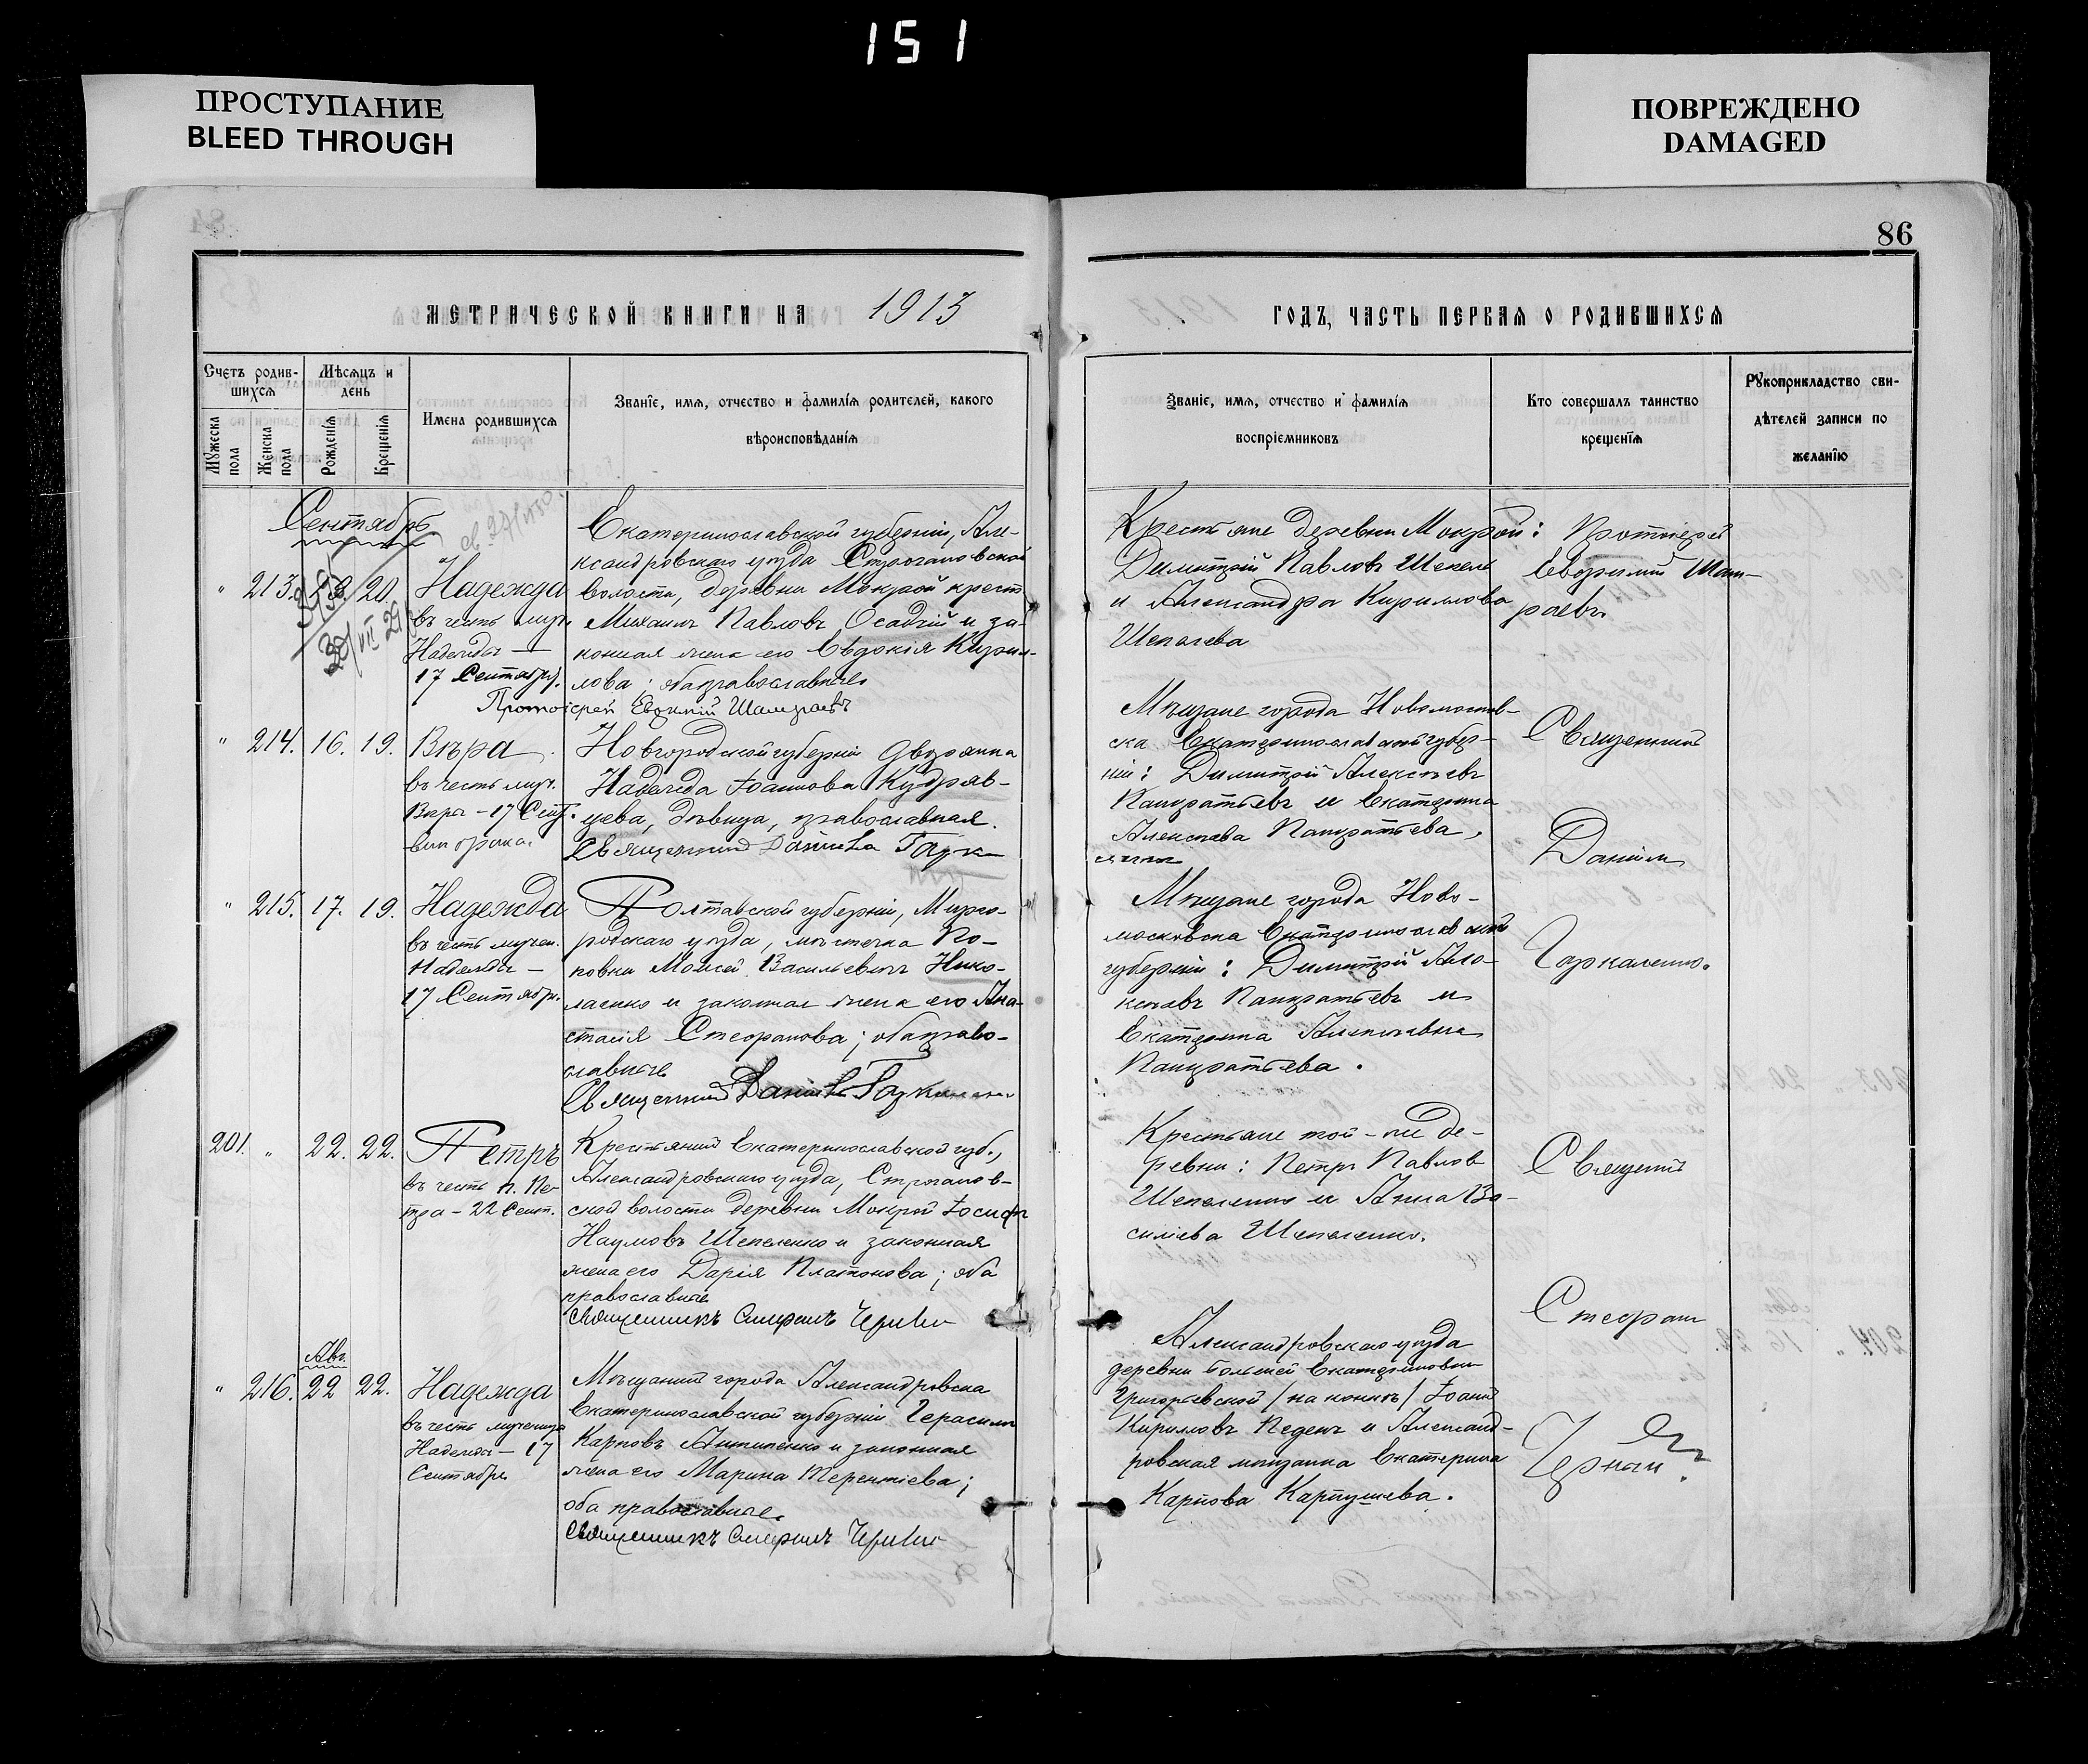 151
ПРОСТУПАНИЕ
BLEED THROUGH
ПОВРЕЖДЕНО
DAMAGED
86
МЕТРИЧЕСКОЙ КНИГИ НА 1913
ГОДЪ, ЧАСТЬ ПЕРВАЯ О РОДИВШИХСЯ
Счетъ родив-
шихся
Мужеска пола
Женска пола
Мѣсяцъ и
день
Рожденїя
Крещенїя
Имена родившихся
Званїе, имя, отчество и фамилїя родителей, какого
вѣроисповѣданїя
Званїе, имя, отчество и фамилїя
воспрїемниковъ
Кто совершалъ таинство
крещенїя
Рукоприкладство сви-
дѣтелей записи по
желанїю
Сентябрь
" 213. 20.
Надежда
въ честь муч.
Надежды —
17 Сентября.
Екатеринославской губерніи, Але-
ксандровскаго уѣзда Строгановской
волости, деревни Мокрой крест.
Михаилъ Павловъ Осадчій и за-
конная жена его Евдокія Кирил-
лова; оба православные
Протоіерей Евфимій
Крестьяне деревни Мокрой:
Димитрій Павловъ Шепеле
и Александра Кириллова
Шепелева
Протоіерей
Евфимій Шам-
раевъ
" 214. 16. 19.
Вѣра
въ честь муч.
Вѣры – 17 Сент.
внѣ брака.
Новгородской губерніи дворянка
Надежда Іоаннова Кудряв-
цева, дѣвица, православная.
Священникъ Даніилъ
Мѣщане города Новомосков-
ска Екатеринославской губер-
ніи: Димитрій Алексѣевъ
Панкратьевъ и Екатерина
Алексѣева Панкратьева,
Священникъ
Даніилъ
Гаркаленко.
" 215. 17. 19.
Надежда
въ честь мучен.
Надежды —
17 Сентября.
Полтавской губерніи, Мирго-
родскаго уѣзда, мѣстечка По-
повки Моисей Васильевичъ Нико-
лаенко и законная жена его Ана-
стасія Стефанова; оба право-
славные
Священникъ Даніилъ
Мѣщане города Ново-
московска Екатеринославской
губерніи: Димитрій Але-
ксѣевъ Панкратьевъ и
Екатерина Алексѣевна
Панкратьева.
201. " 22. 22.
Петръ
въ честь п. Пе-
тра – 22 Сент.
Крестьянинъ Екатеринославской губ.,
Александровскаго уѣзда, Строганов-
ской волости деревни Мокрой Іосифъ
Наумовъ Шепеленко и законная
жена его Дарія Платонова; оба
православные
Священникъ Стефанъ
Крестьяне той-же де-
ревни: Петръ Павловъ
Шепеленко и Анна Ва-
силіева Шепеленко.
Священникъ
Стефанъ
Авг.
" 216. 22 22.
Надежда
въ честь мученицы
Надежды – 17
Сентября
Мѣщанинъ города Александровска
Екатеринославской губерніи Герасимъ
Карповъ Антипенко и законная
жена его Марина Терентіева;
оба православные.
Священникъ Стефанъ
Александровскаго уѣзда
деревни Большей Екатериновки
Григорьевской / на конкѣ / Іоаннъ
Кирилловъ Педенъ и Александ-
ровская мѣщанка Екатерина
Карпова Карпушева.